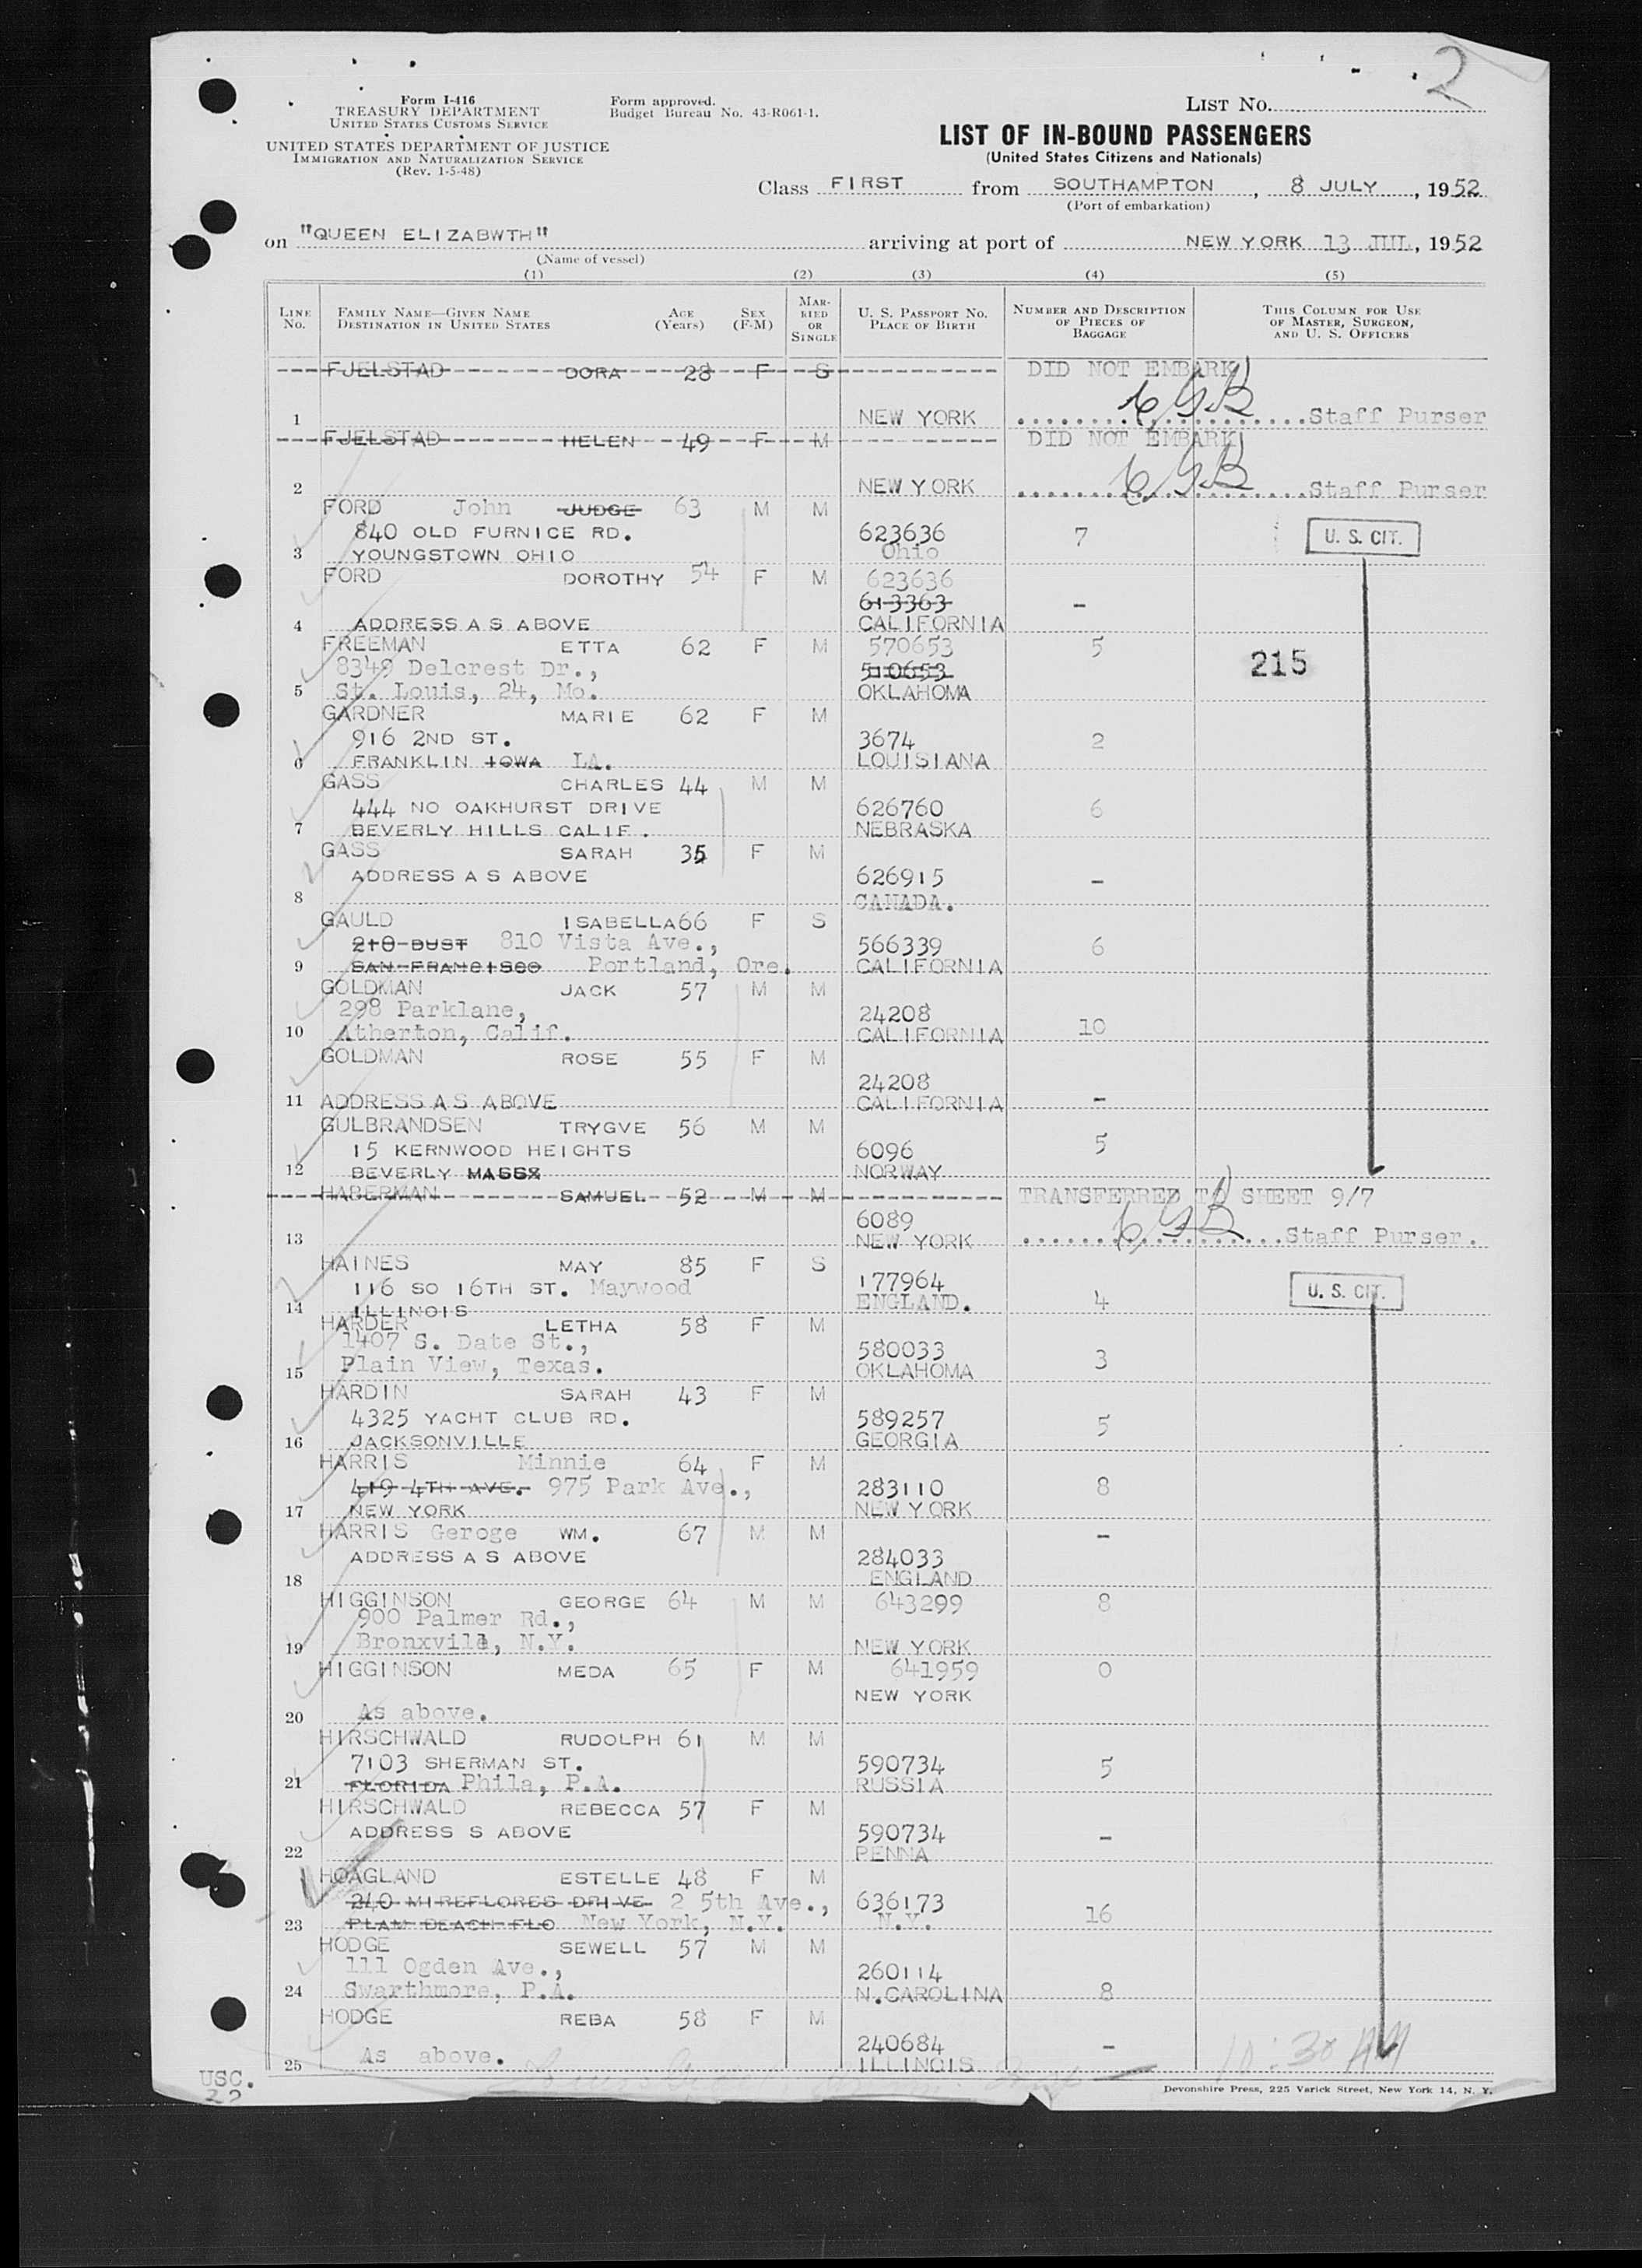 2
Form I-416
TREASURY DEPARTMENT
UNITED STATES CUSTOMS SERVICE
UNITED STATES DEPARTMENT OF JUSTICE
IMMIGRATION AND NATURALIZATION SERVICE
(Rev. 1-5-48)
Form approved.
Budget Bureau No. 43-R061-1.
LIST No.
LIST OF IN-BOUND PASSENGERS
(United States Citizens and Nationals)
Class FIRST from SOUTHAMPTON, 8 JULY, 1952
(Port of embarkation)
on "QUEEN ELIZABWTH" arriving at port of NEW YORK 13 JUL, 1952
(Name of vessel)
(1) (2) (3) (4) (5)
LINE No. FAMILY NAME—GIVEN NAME DESTINATION IN UNITED STATES AGE (Years) SEX (F-M) MARRIED OR SINGLE U. S. PASSPORT No. PLACE OF BIRTH NUMBER AND DESCRIPTION OF PIECES OF BAGGAGE THIS COLUMN FOR USE OF MASTER, SURGEON, AND U. S. OFFICERS
FJELSTAD DORA 28 F S DID NOT EMBARK
1 NEW YORK Staff Purser
FJELSTAD HELEN 49 F M DID NOT EMBARK
2 NEW YORK Staff Purser
FORD John JUDGE 63 M M
840 OLD FURNICE RD. 623636 7 U. S. CIT.
3 YOUNGSTOWN OHIO Ohio
FORD DOROTHY 54 F M 623636
613363 -
4 ADDRESS A S ABOVE CALIFORNIA
FREEMAN ETTA 62 F M 570653 5
8349 Delcrest Dr., 510653 215
5 St. Louis, 24, Mo. OKLAHOMA
GARDNER MARIE 62 F M
916 2ND ST. 3674 2
6 FRANKLIN IOWA LA. LOUISIANA
GASS CHARLES 44 M M
444 NO OAKHURST DRIVE 626760 6
7 BEVERLY HILLS CALIF. NEBRASKA
GASS SARAH 35 F M
ADDRESS A S ABOVE 626915 -
8 CANADA.
GAULD ISABELLA 66 F S
210 BUST 810 Vista Ave., 566339 6
9 SAN FRANCISCO Portland, Ore. CALIFORNIA
GOLDMAN JACK 57 M M
298 Parklane, 24208
10 Atherton, Calif. CALIFORNIA 10
GOLDMAN ROSE 55 F M
24208
11 ADDRESS A S ABOVE CALIFORNIA -
GULBRANDSEN TRYGVE 56 M M
15 KERNWOOD HEIGHTS 6096 5
12 BEVERLY MASSX NORWAY
HABERMAN SAMUEL 52 M M TRANSFERRED TO SHEET 9/7
6089
13 NEW YORK Staff Purser.
HAINES MAY 85 F S
116 SO 16TH ST. Maywood 177964 U. S. CIT.
14 ILLINOIS ENGLAND. 4
HARDER LETHA 58 F M
1407 S. Date St., 580033
15 Plain View, Texas. OKLAHOMA 3
HARDIN SARAH 43 F M
4325 YACHT CLUB RD. 589257 5
16 JACKSONVILLE GEORGIA
HARRIS Minnie 64 F M
419 4TH AVE. 975 Park Ave., 283110 8
17 NEW YORK NEW YORK
HARRIS Geroge WM. 67 M M -
ADDRESS A S ABOVE 284033
18 ENGLAND
HIGGINSON GEORGE 64 M M 643299 8
900 Palmer Rd.,
19 Bronxvile, N.Y. NEW YORK
HIGGINSON MEDA 65 F M 641959 0
NEW YORK
20 As above.
HIRSCHWALD RUDOLPH 61 M M
7103 SHERMAN ST. 590734 5
21 FLORIDA Phila, P.A. RUSSIA
HIRSCHWALD REBECCA 57 F M
ADDRESS S ABOVE 590734 -
22 PENNA
HOAGLAND ESTELLE 48 F M
240 MIREFLORES DRIVE 2 5th Ave., 636173 16
23 PLAM BEACH FLO New York, N.Y. N.Y.
HODGE SEWELL 57 M M
111 Ogden Ave., 260114
24 Swarthmore, P.A. N.CAROLINA 8
HODGE REBA 58 F M
240684 -
25 As above. ILLINOIS 10:30 AM
USC.
22
Devonshire Press, 225 Varick Street, New York 14, N. Y.